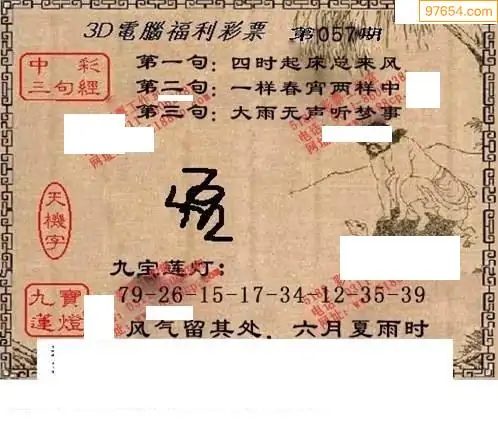 97654.com
3D電腦福利彩票 第057期
中彩三句經
第一句：四时起床总来风
第二句：一样春宵两样中
第三句：大雨无声听梦事
天機字
九宝莲灯：
九寶蓮燈
79-26-15-17-34-12-35-39
风气留其处．六月夏雨时